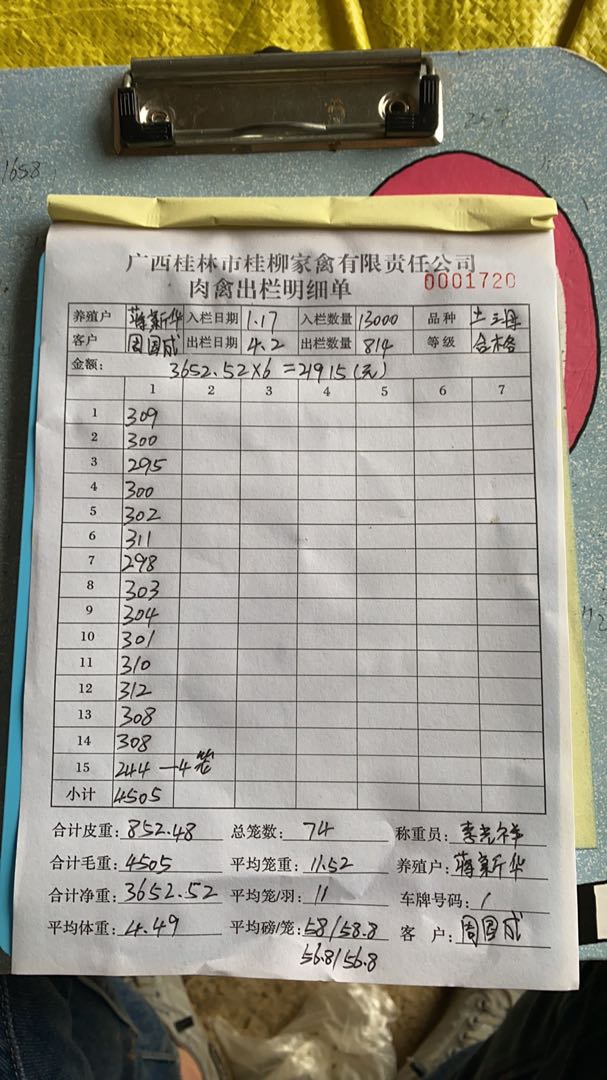 1658
257
广西桂林市桂柳家禽有限责任公司
肉禽出栏明细单 0001720
养殖户 蒋新华 入栏日期 1.17 入栏数量 13000 品种 土三母
客户 周国成 出栏日期 4.2 出栏数量 814 等级 合格
金额: 3652.52×6=21915(元)
1 2 3 4 5 6 7
1 309
2 300
3 295
4 300
5 302
6 311
7 298
8 303
9 304
10 301
11 310
12 312
13 308
14 308
15 244 —4笼
小计 4505
合计皮重: 852.48 总笼数: 74 称重员:
合计毛重: 4505 平均笼重: 11.52 养殖户: 蒋新华
合计净重: 3652.52 平均笼/羽: 11 车牌号码: /
平均体重: 4.49 平均磅/笼: 58/58.8 客 户: 周国成
56.8/56.8